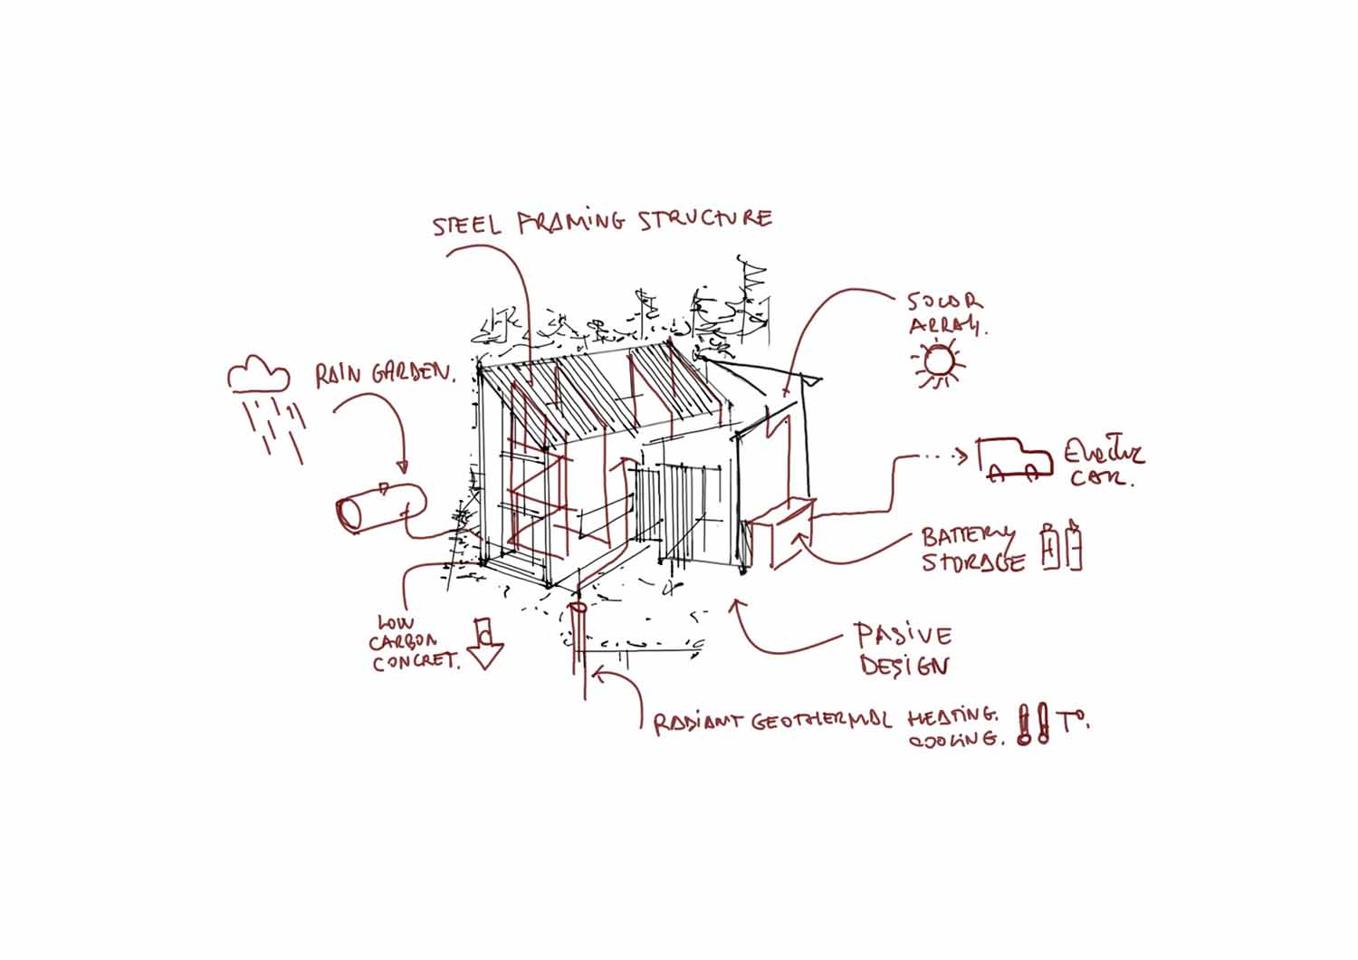 STEEL FRAMING STRUCTURE
SOLAR
ARRAY.
RAIN GARDEN.
Electric
CAR.
BATTERY
STORAGE
LOW
CARBON
CONCRET.
PASIVE
DESIGN
RADIANT GEOTHERMAL HEATING.
COOLING.
Tº.